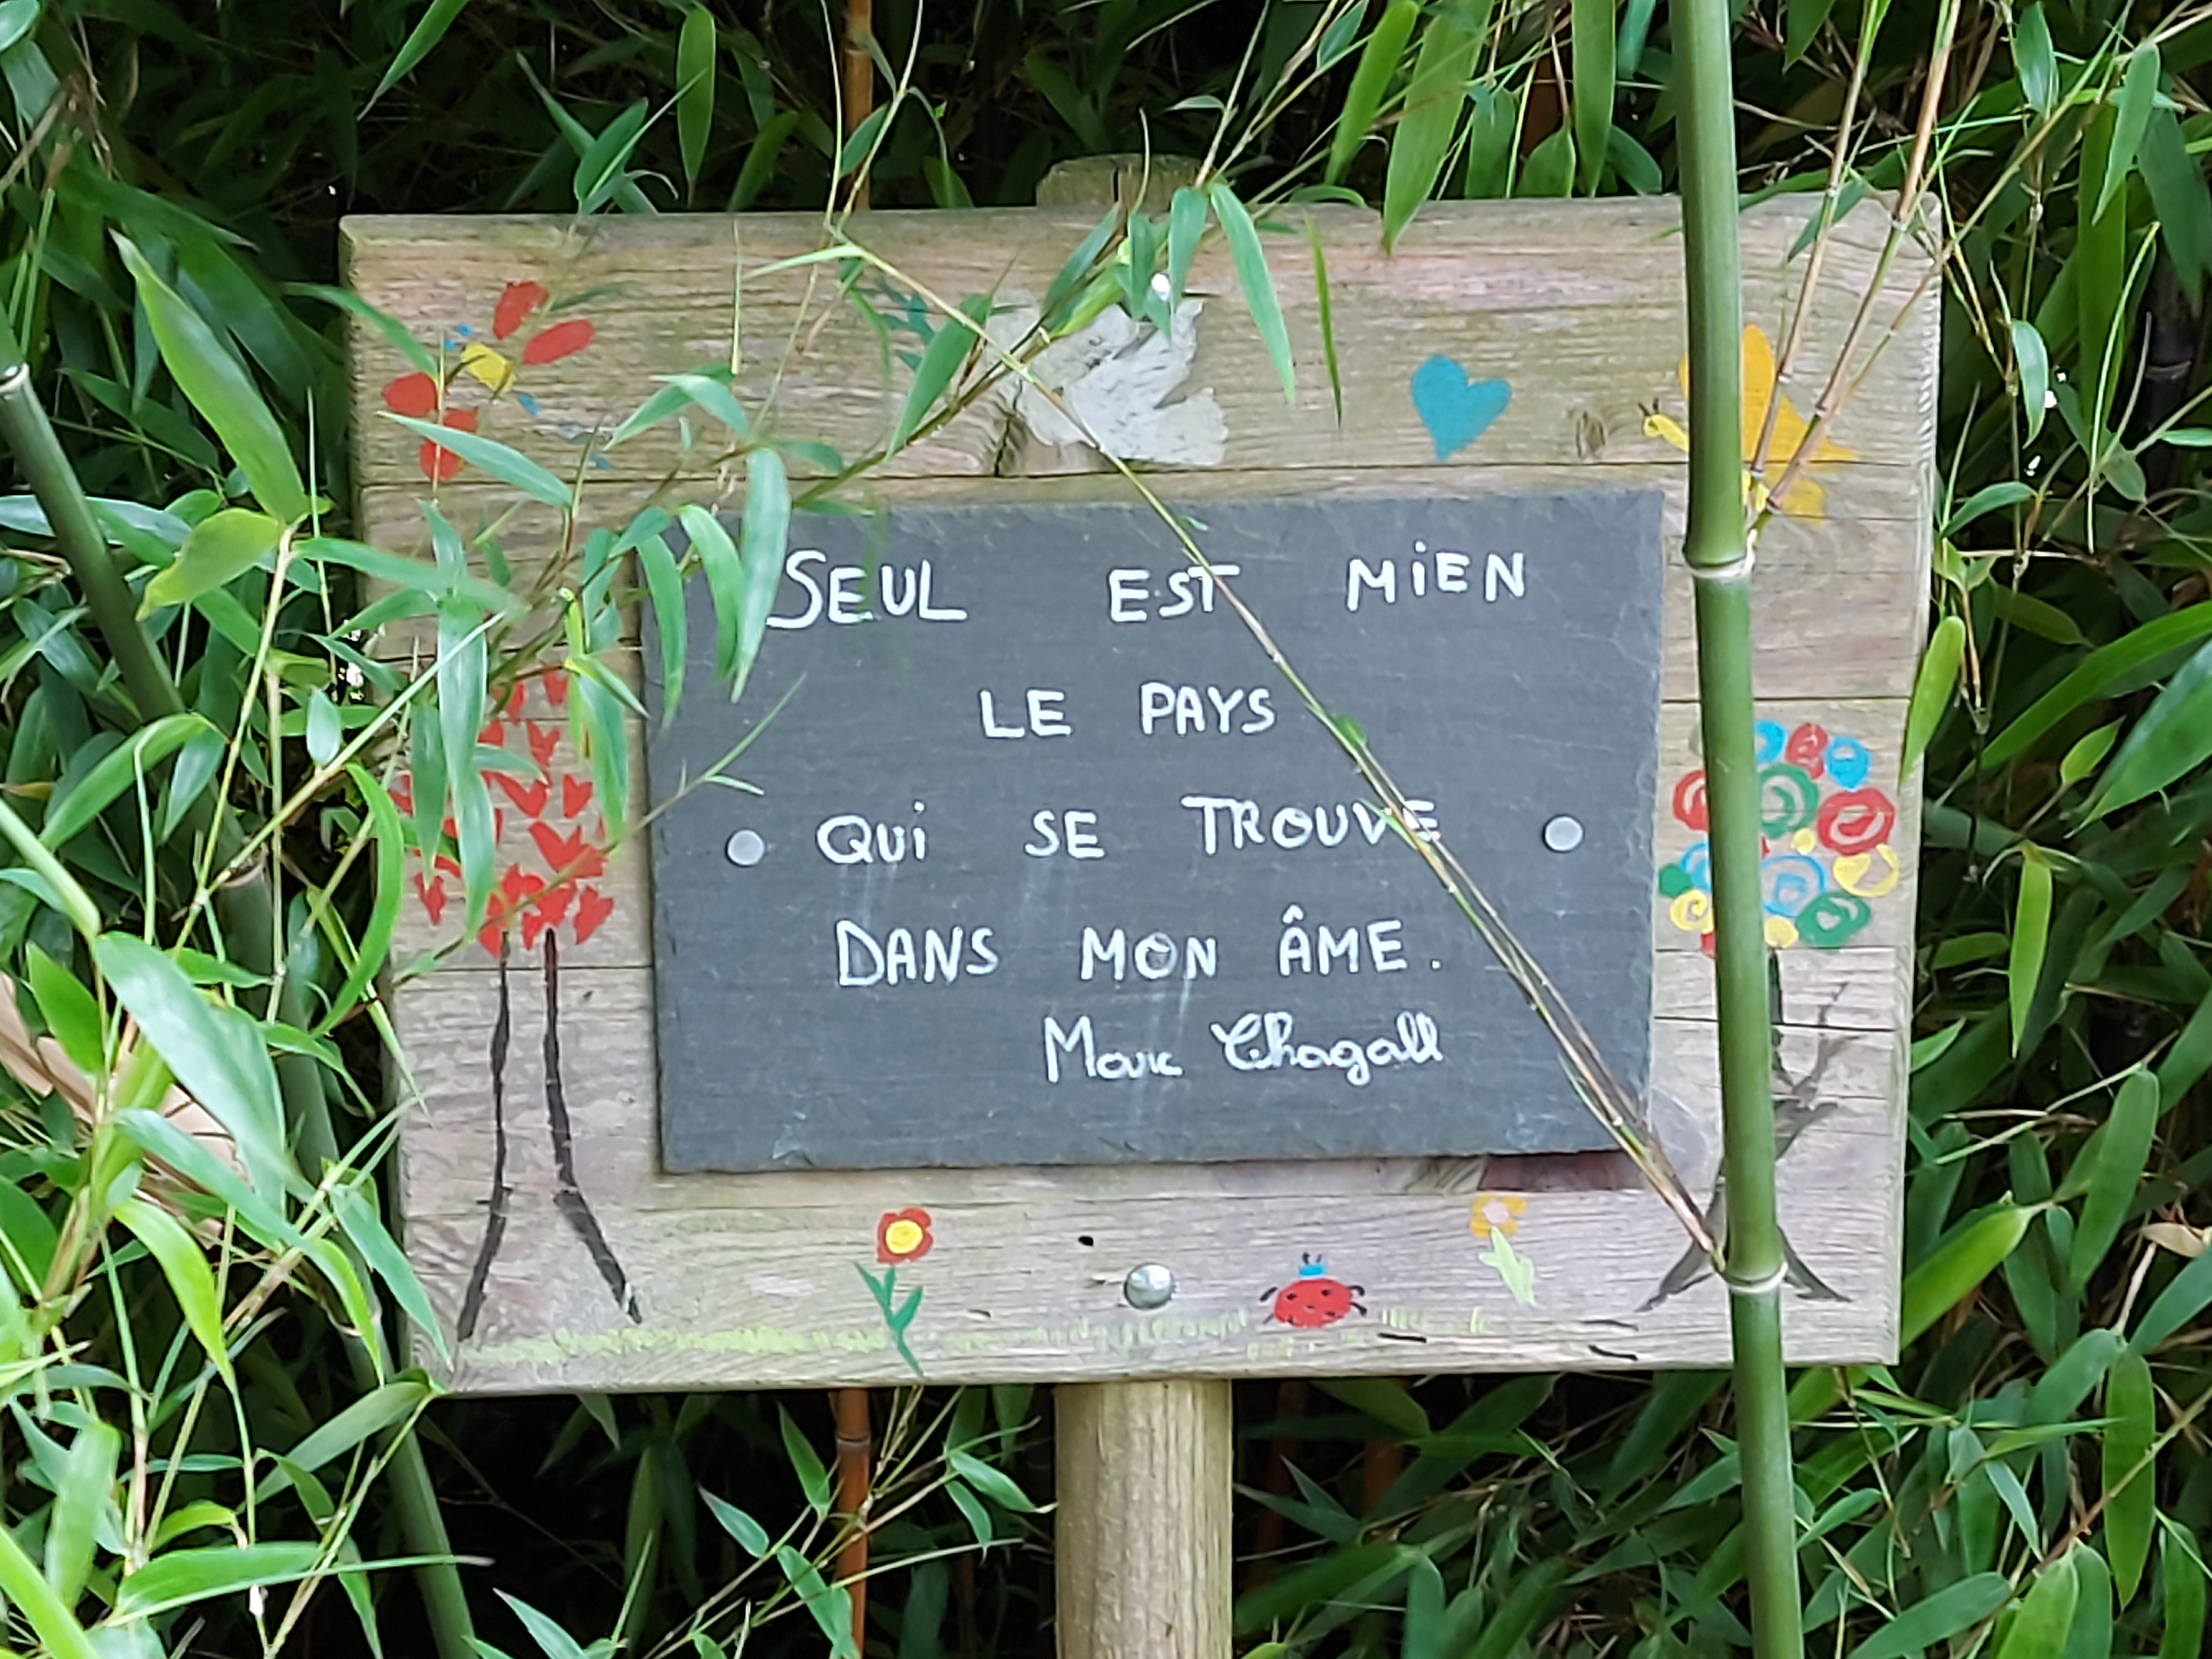 SEUL EST MiEN
LE PAYS
QUi SE TROUVE
DANS MON ÂME.
Marc Chagall